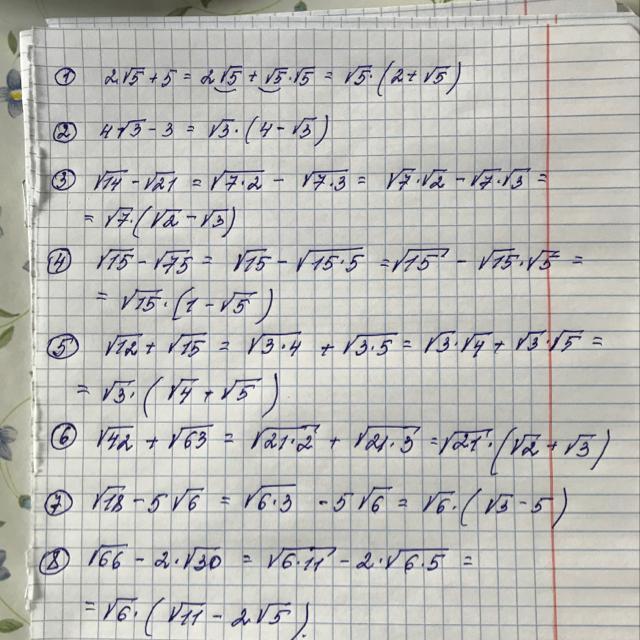 ① 2√5 + 5 = 2√5 + √5·√5 = √5·(2+√5)
② 4√3 - 3 = √3·(4-√3)
③ √14 - √21 = √7·2 - √7·3 = √7·√2 - √7·√3 =
= √7·(√2 - √3)
④ √15 - √75 = √15 - √15·5 = √15 - √15·√5 =
= √15·(1-√5)
⑤ √12 + √15 = √3·4 + √3·5 = √3·√4 + √3·√5 =
= √3·(√4 + √5)
⑥ √42 + √63 = √21·2 + √21·3 = √21·(√2 + √3)
⑦ √18 - 5√6 = √6·3 - 5√6 = √6·(√3 - 5)
⑧ √66 - 2·√30 = √6·11 - 2·√6·5 =
= √6·(√11 - 2√5).